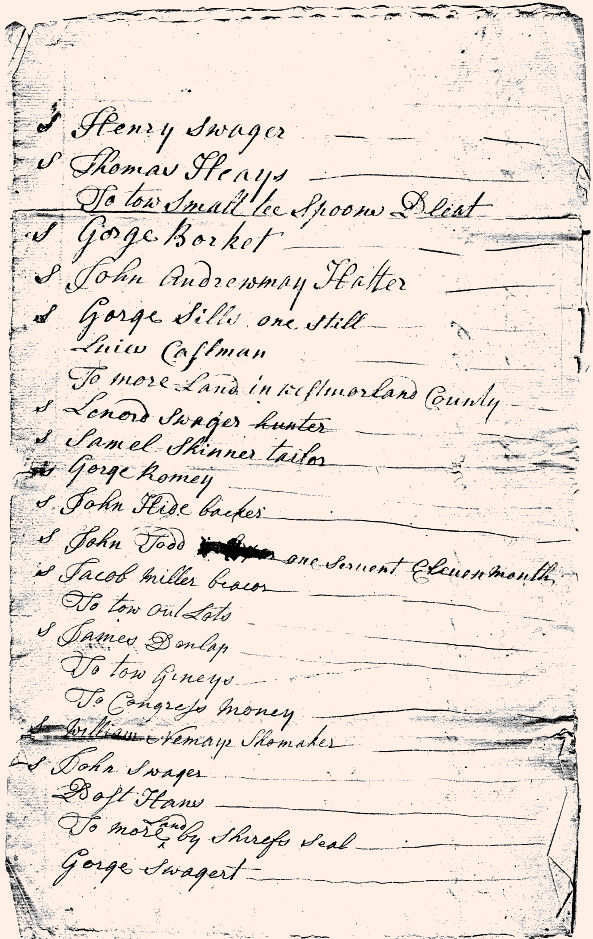 S Henry Swager
S Thomas Heays
To tow Small tee Spoons Pleat
S Gorge Borket
S John Andrewmay Hatter
S Gorge Sills one still
Luiw Castman
To more Land in westmorland County
S Lenord Swager hunter
S Samel Skinner tailor
S Gorge Romey
S John Hide backer
S John Todd one servent Eleven month
S Jacob Miller
To tow out Lots
S James Dunlap
To tow Gineys
To Congress money
S William Nemayr Shomaker
S John Swager
Bost Hans
To more Land by Shirefs seal
Gorge Swagert